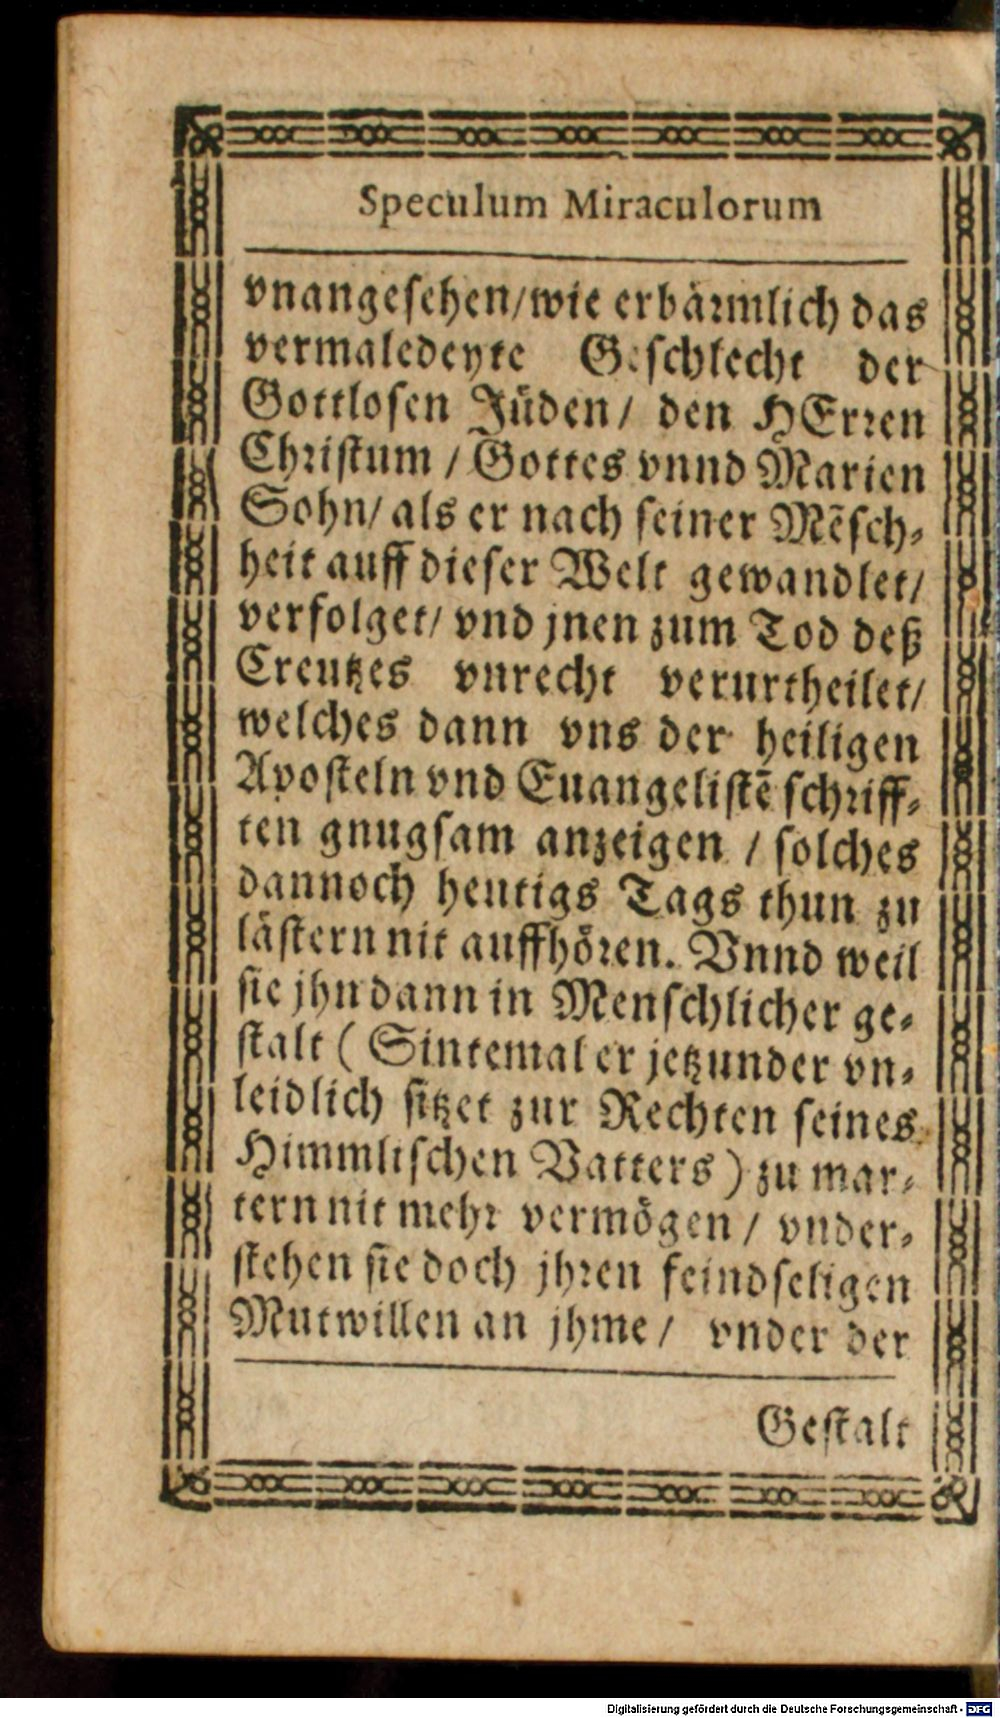 Speculum Miraculorum
vnangesehen/wie erbärmlich das
vermaledeyte Geschlecht der
Gottlosen Jüden/ den HErren
Christum / Gottes vnnd Marien
Sohn/ als er nach seiner Mẽsch-
heit auff dieser Welt gewandlet/
verfolget/ vnd jnen zum Tod deß
Creutzes vnrecht verurtheilet/
welches dann vns der heiligen
Aposteln vnd Euangelistẽ schriff-
ten gnugsam anzeigen / solches
dannoch heutigs Tags thun zu
lästern nit auffhören. Vnnd weil
sie jhn dann in Menschlicher ge-
stalt ( Sintemal er jetzunder vn-
leidlich sitzet zur Rechten seines
Himmlischen Vatters ) zu mar-
tern nit mehr vermögen / vnder-
stehen sie doch jhren feindseligen
Mutwillen an jhme / vnder der
Gestalt
Digitalisierung gefördert durch die Deutsche Forschungsgemeinschaft - DFG